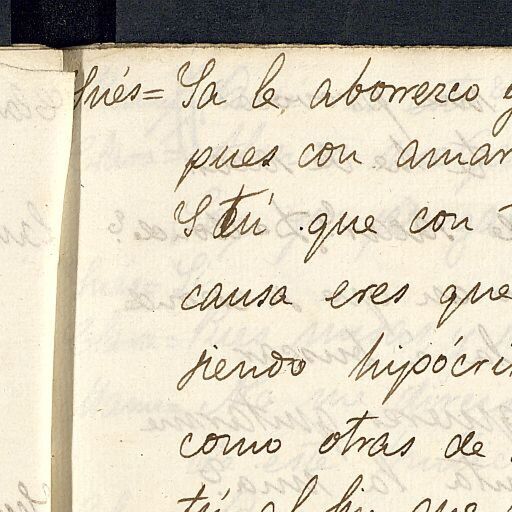 Inés = Ya le aborrezco y
pues con amar
Y tú que con
causa eres que
siendo hipócri
como otras de
tú al fin que